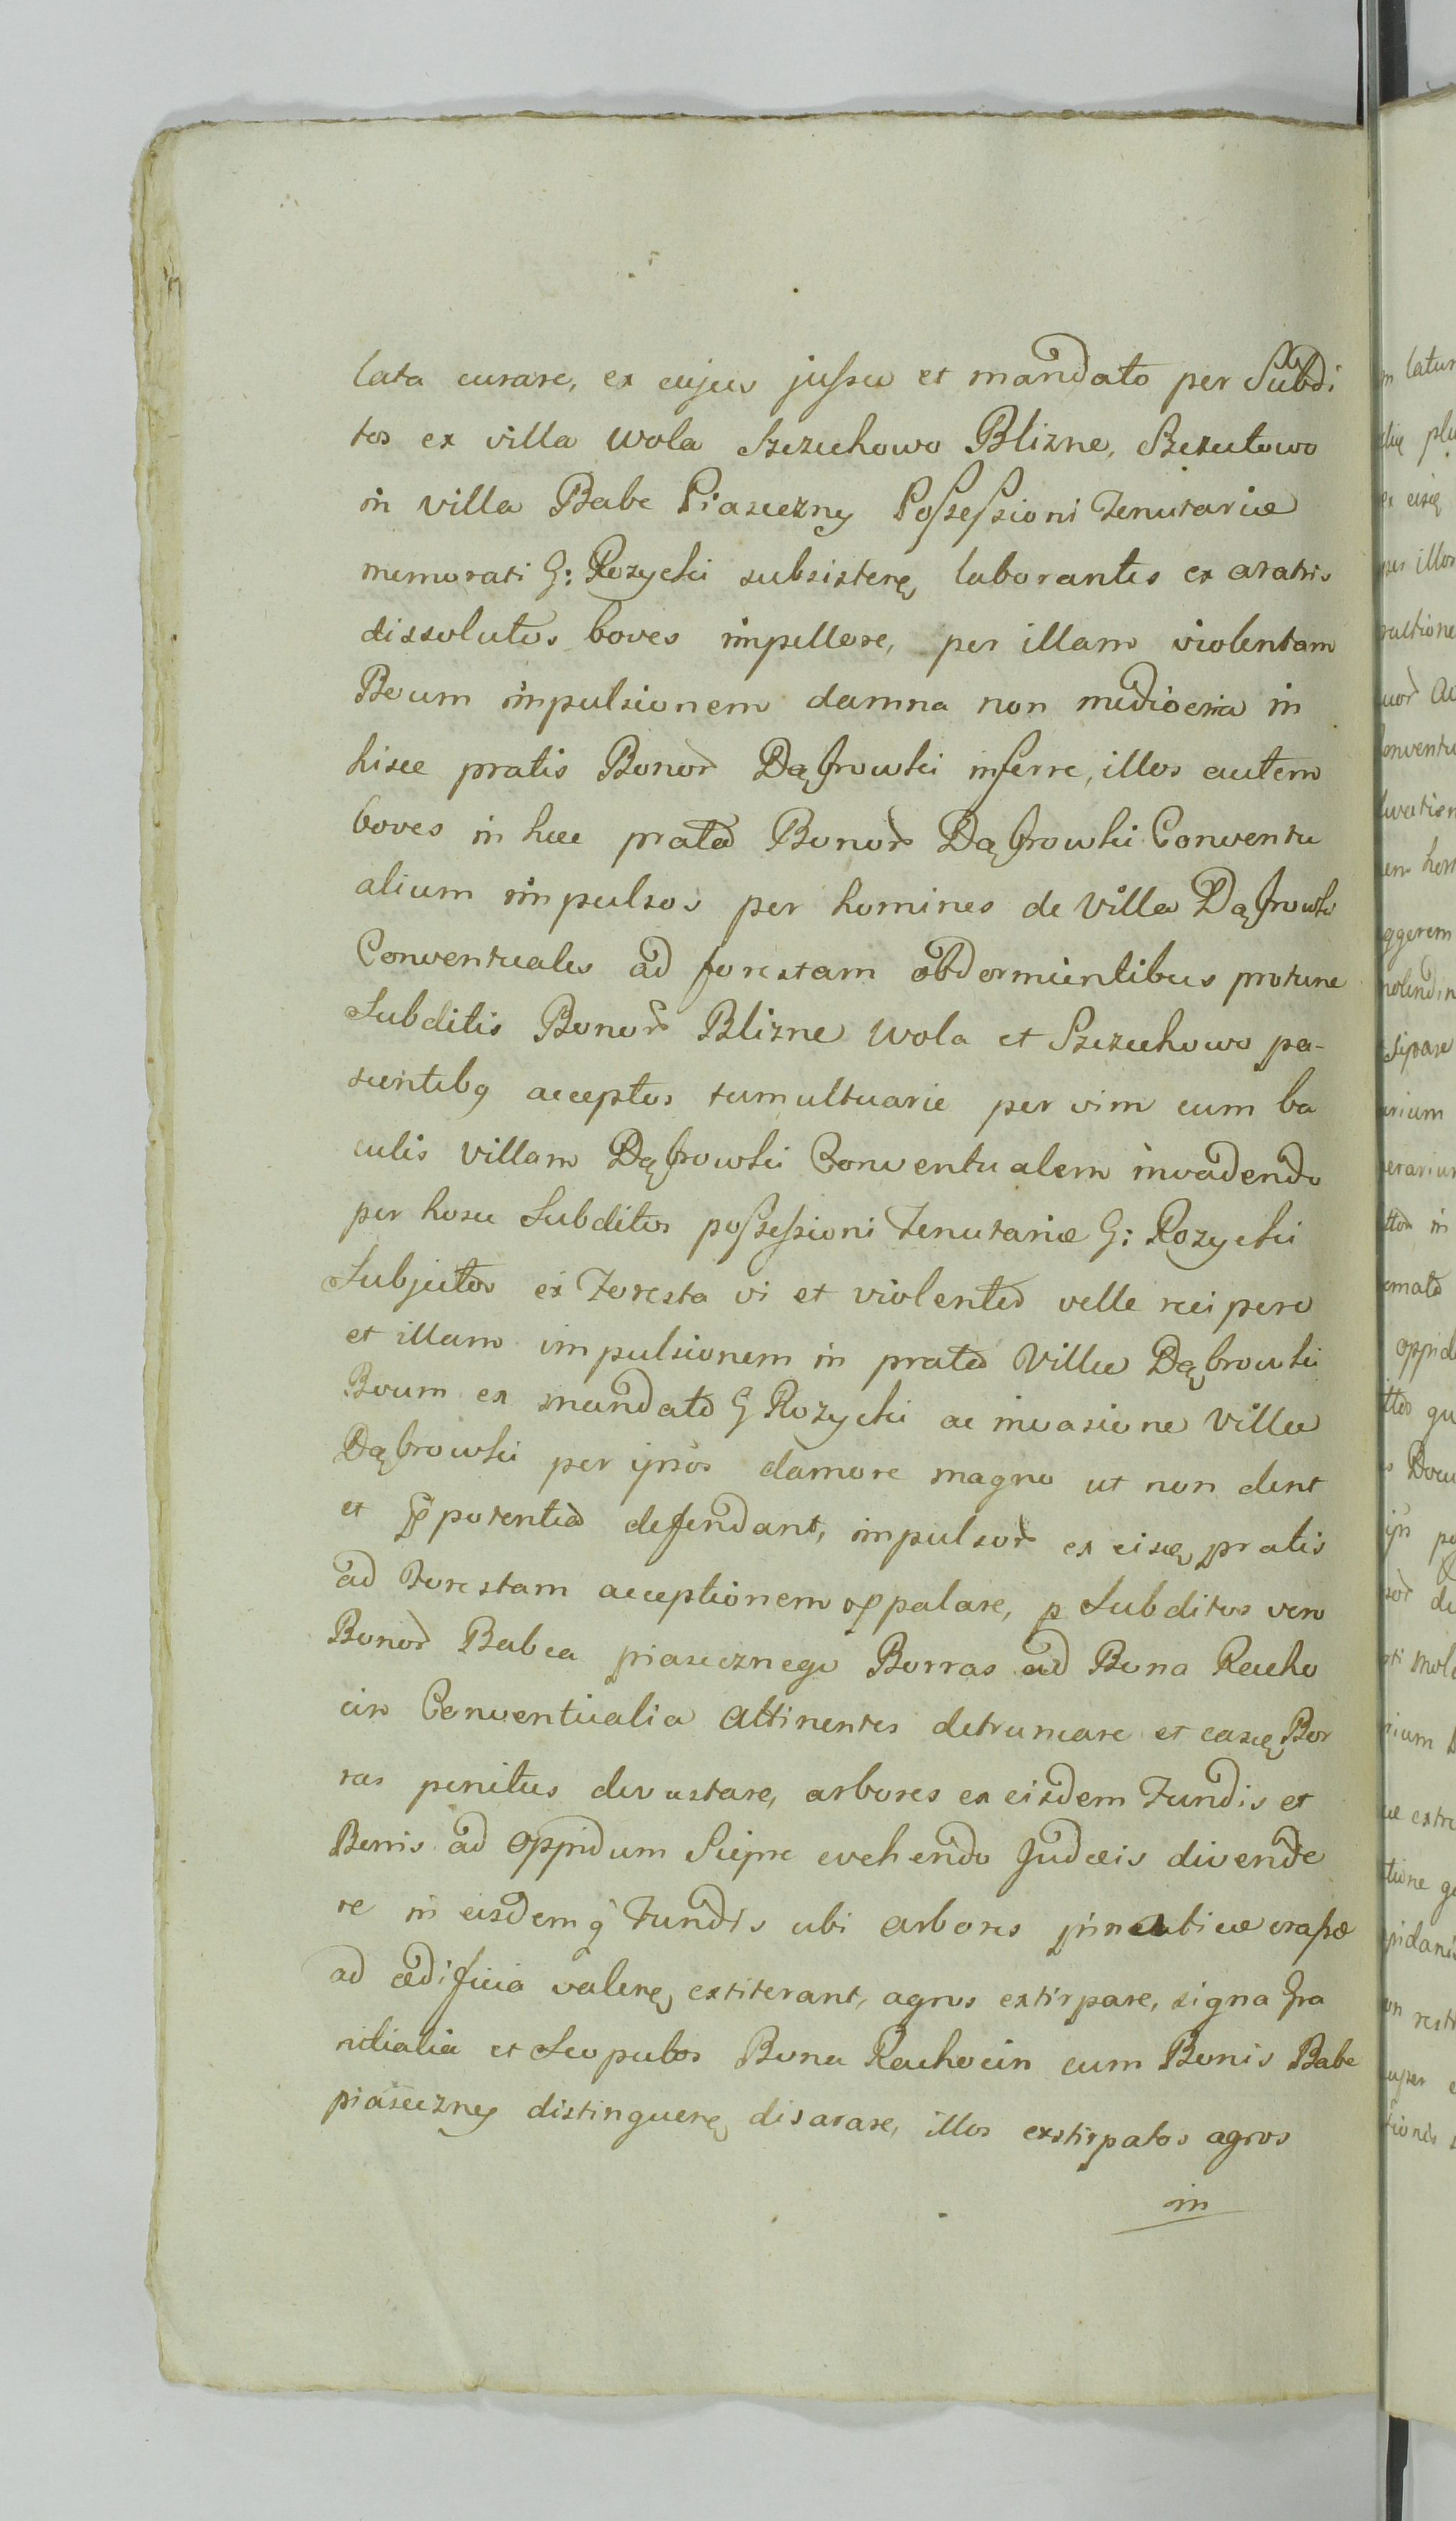 lata curare, ex cujus jussu et mandato per Subdi
tos ex villa Wola Szczuchowo Blizne, Szczutowo
in villa Babe Piaseczny Possessioni Tenutariæ
memorati G: Rozycki subsisteñ laborantes ex aratris
dissolutos boves impellere, per illam violentam
Boum impulsionem damna non mediocria in
hisce pratis Bonor Dąbrowki inferre, illos autem
boves in hæc prata Bonor Dąbrowki Conventu
alium impulsos per homines de Villa Dąbrowki
Conventuales ad forestam obdormientibus protunc
Subditis Bonor Blizne Wola et Szczuchowo pa-
scentibq acceptos tumultuarie per vim cum ba
culis villam Dąbrowki Conventualem invadendo
per hosce Subditos possessioni Tenutariæ G: Rozycki
Subjectos ex Foresta vi et violenter velle recipere
et illam impulsionem in prata Villæ Dąbrowki
Boum ex mandato G Rozycki ac invasione Villæ
Dąbrowki per ipsos clamore magno ut non dent
et potentia defendant, impulsor ex eisd pratis
ad Forestam acceptionem oppalare, p Subditos vero
Bonor Babca piasecznego Borras ad Bona Racho
cin Conventualia attinentes detruncare et easd Bor
ras penitus devastare, arbores ex eisdem Fundis et
Bonis ad Oppidum Sierpc evehendo Judæis divende
re in eisdem q Fundis ubi arbores crassæ
ad ædificia valeñ extiterant, agros extirpare, signa Gra
nicialia et Scopulos Bona Rachocin cum Bonis Babe
piaseczny distingueñ disarare, illos exstirpatos agros
in